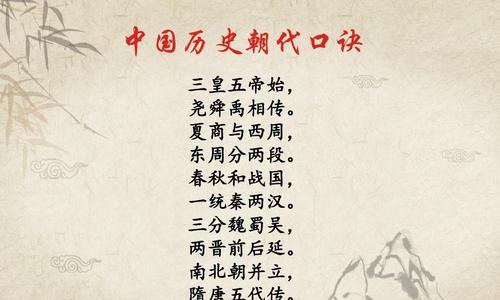 中国历史朝代口诀
三皇五帝始，
尧舜禹相传。
夏商与西周，
东周分两段。
春秋和战国，
一统秦两汉。
三分魏蜀吴，
两晋前后延。
南北朝并立，
隋唐五代传。